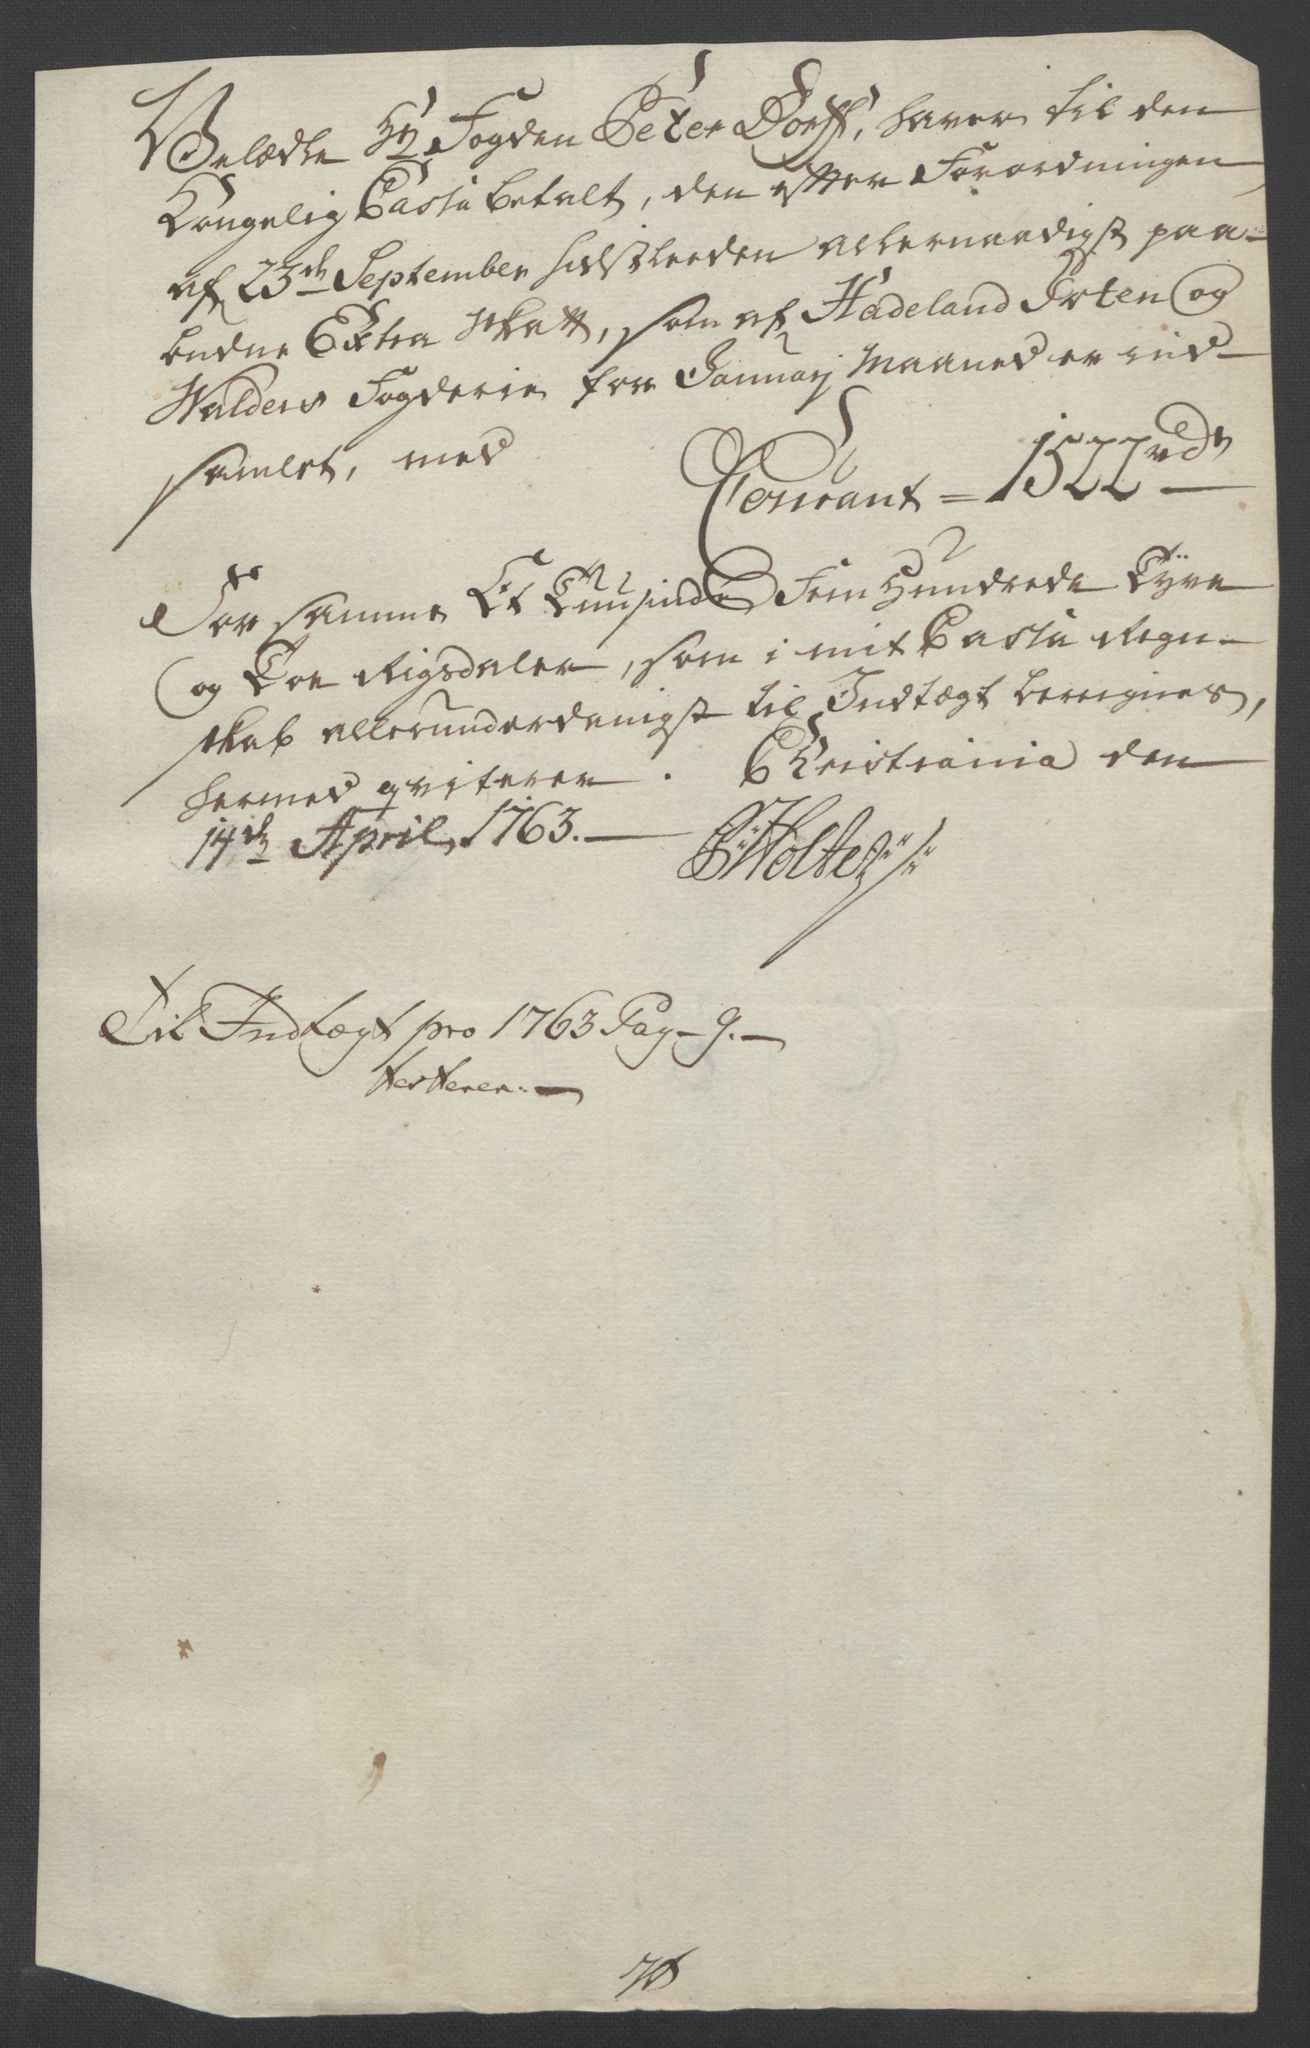 Welædle Hr Fogden Peter Dorff, haver til den
Kongelig Cassa betalt, den efter Forordningen
af 23de September sidstleeden allernaadigst paa-
budne Extra Skatt, som af Hadeland Toten og
Walders Fogderie for Januarj Maaned er ind-
samlet, med
Courant = 1522 rdr
For samme Et Tuusinde Fem Hundrede Tÿve
og Toe Rigsdaler, som i mit Cassa Regn-
skab allerunderdanigst til Indtægt beregnes,
hermed qviterer. Christiania den
14de April, 1763.
Holte
Til Indtægt pro 1763 Pag - 9.
testerer.